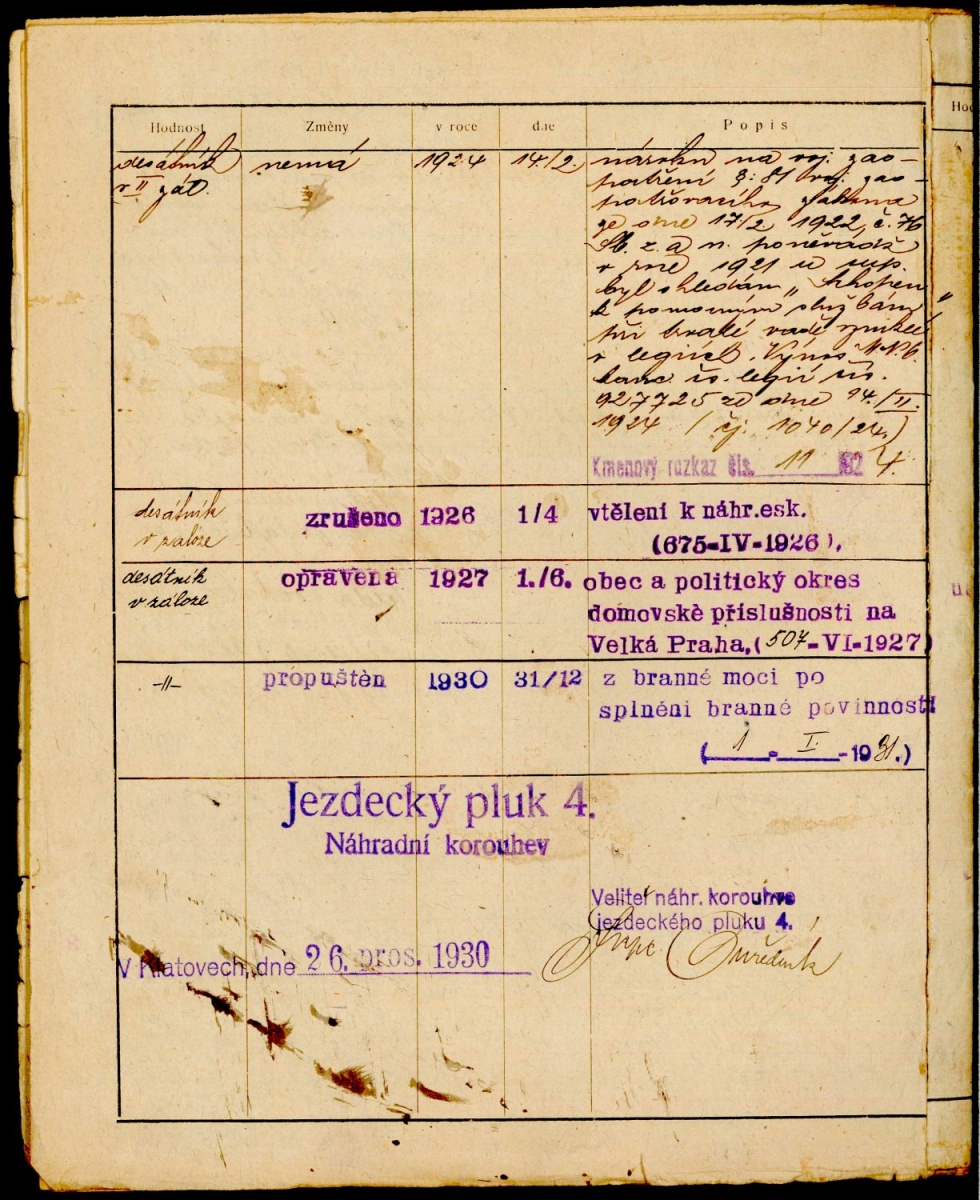 Hodnost Změny v roce dne Popis
desátník nemá 1924 14/2. nároku na voj. zao-
v II zál. patření §: 81 voj. zao-
patřovacího zákona
ze dne 17/2 1922, č. 76
Sb. z. a n. poněvadž
v roce 1921 u sup.
byl shledán „Schopen
k pomocným službám"
při trvalé vadě vzniklé
v legiích. Výnos M.N.O.
kanc. čs. legií čís.
927725 ze dne 14./II.
1924 / čj. 1040/24.)
Kmenový rozkaz čís. 11 1924
desátník zrušeno 1926 1/4 vtělení k náhr.esk.
v záloze (675-IV-1926).
desátník opravena 1927 1./6. obec a politický okres
v záloze domovské příslušnosti na
Velká Praha.(507-VI-1927)
-"- propuštěn 1930 31/12 z branné moci po
splnění branné povinnosti
( 1 - I. -1931.)
Jezdecký pluk 4.
Náhradní korouhev
Velitel náhr. korouhve
jezdeckého pluku 4.
V Klatovech, dne 26. pros. 1930